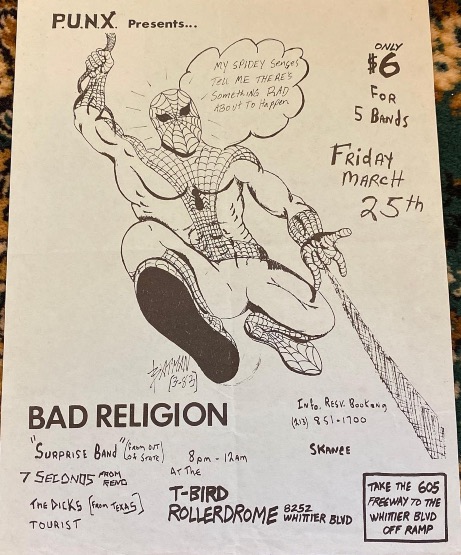 P.U.N.X. Presents...
MY SPIDEY Senses
TELL ME THERE'S
Something BAD
ABOUT TO HAPPEN
ONLY
$6
FOR
5 BANDS
FRIDAY
MARCH
25th
[3-83]
BAD RELIGION
"SURPRISE BAND" (FROM OUT OF STATE)
7 SECONDS FROM RENO
THE DICKS [FROM TEXAS]
TOURIST
8pm - 12am
AT THE
T-BIRD
ROLLERDROME 8252 WHITTIER BLVD
Info. Resv. Booking
(213) 851-1700
TAKE THE 605
FREEWAY TO THE
WHITTIER BLVD
OFF RAMP